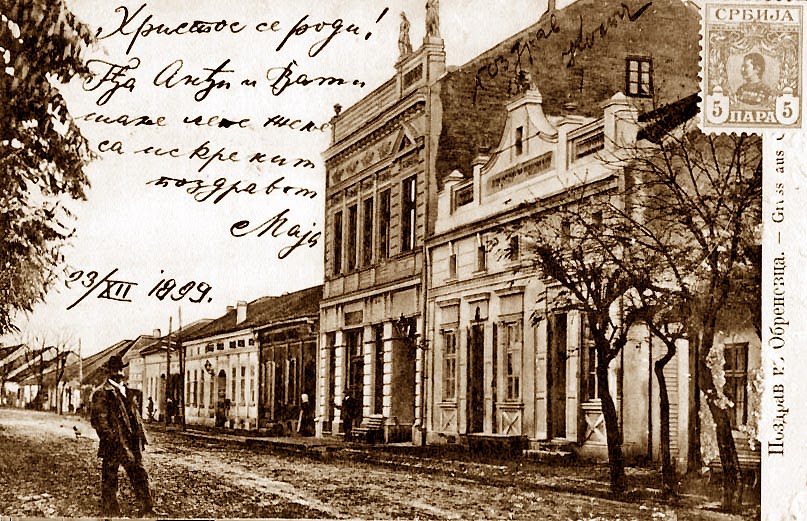 Христос се роди!
Гђа Анђи и Вати
шаље лепе жеље
са искреним
поздравом
Маја
23/XII 1899.
поздрав
СРБИЈА
5 5
ПАРА
Поздрав из Обреновца. — Gruss aus